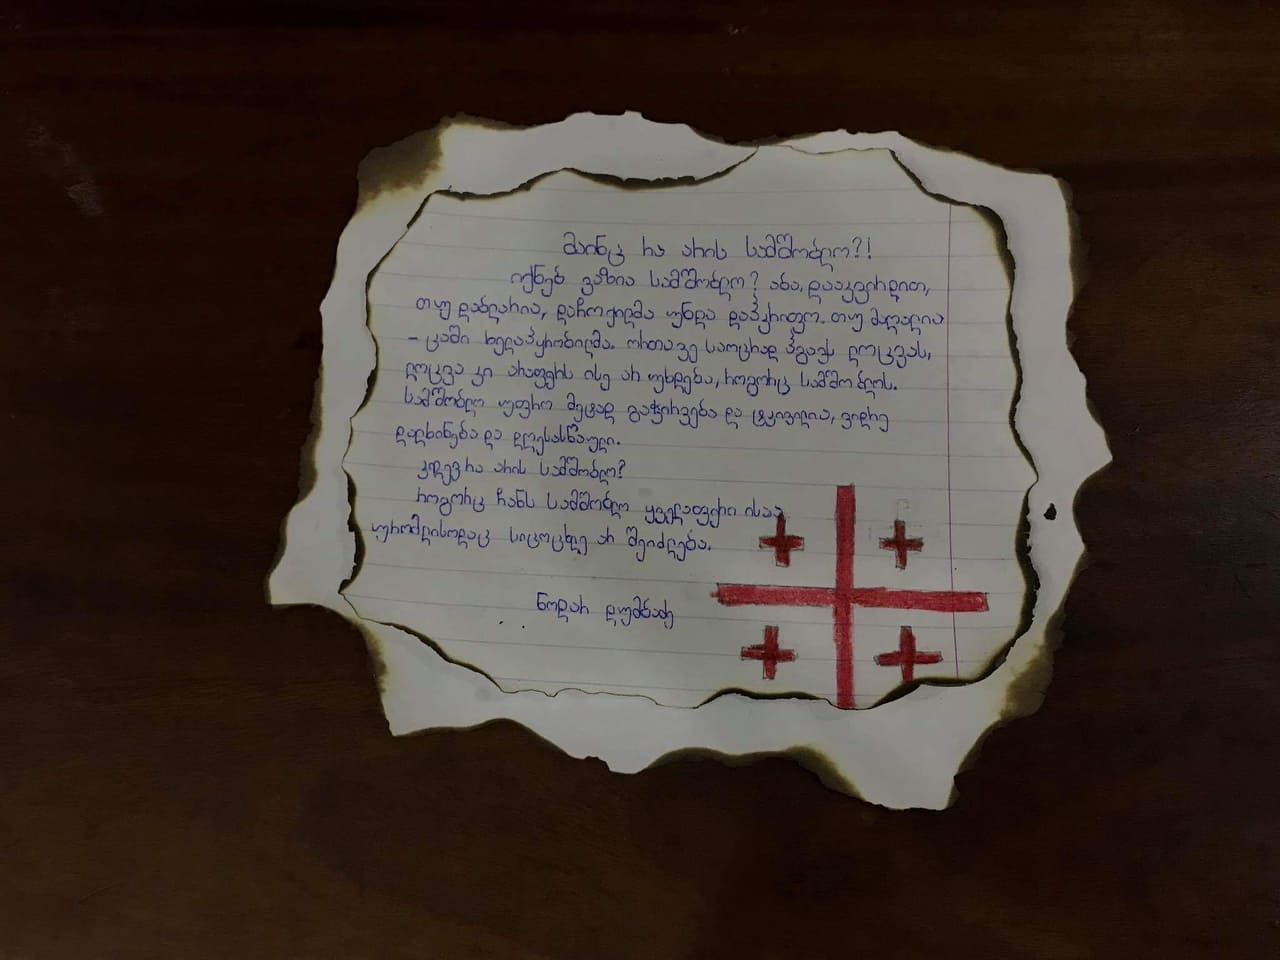 მაინც რა არის სამშობლო?!
იქნებ ვაზია სამშობლო? აბა, დააკვირდით,
თუ დაბლარია, დაჩოქილმა უნდა დაჰკრიფო. თუ მაღალია
- ცაში ხელაპყრობილმა. ორთავე საოცრად ჰგავს ლოცვას,
ლოცვა კი არაფერს ისე არ უხდება, როგორც სამშობლოს.
სამშობლო უფრო მეტად გაჭირვება და ტკივილია, ვიდრე
დალხინება და დღესასწაული.
კიდევ რა არის სამშობლო?
როგორც ჩანს სამშობლო ყველაფერი ისაა
ურომლისოდაც სიცოცხლე არ შეიძლება.
ნოდარ დუმბაძე